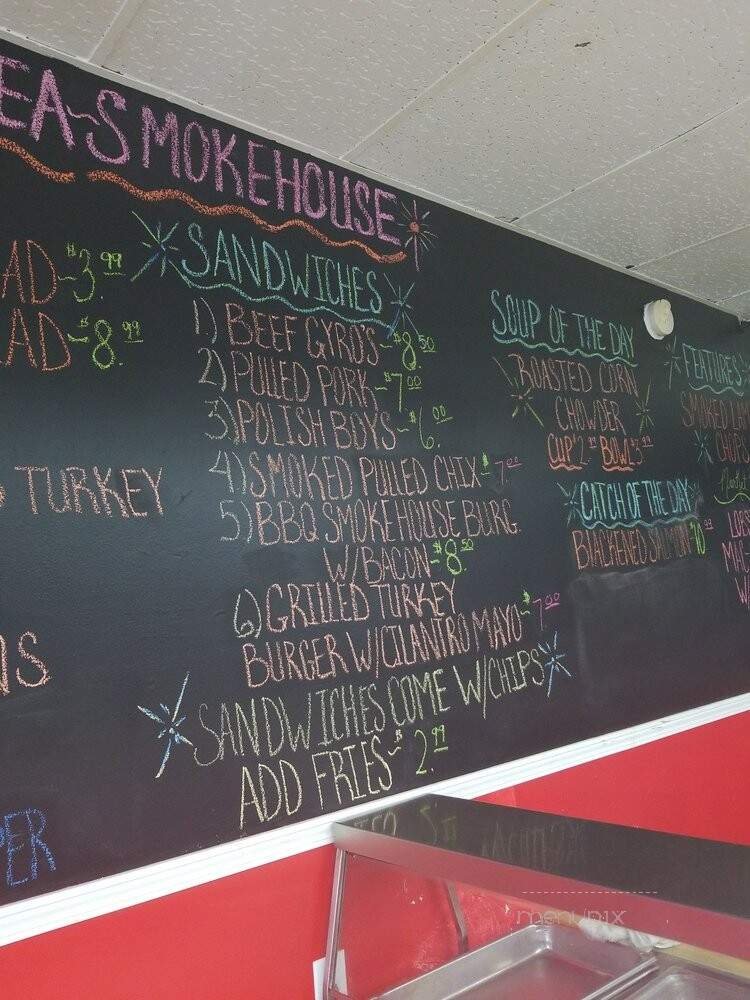 EA-SMOKEHOUSE
AD-$3.99
AD-$8.99
TURKEY
NS
PER
SANDWICHES
1) BEEF GYRO'S-$8.50
2) PULLED PORK-$7.00
3) POLISH BOYS-$6.00
4) SMOKED PULLED CHIX-$7.00
5) BBQ SMOKEHOUSE BURG.
W/BACON-$8.50
6) GRILLED TURKEY
BURGER W/CILANTRO MAYO-$7.00
SANDWICHES COME W/CHIPS
ADD FRIES-$2.99
SOUP OF THE DAY
ROASTED CORN
CHOWDER
CUP BOWL
CATCH OF THE DAY
BLACKENED SALMON
FEATURES
SMOKED
CHOPS
menupix